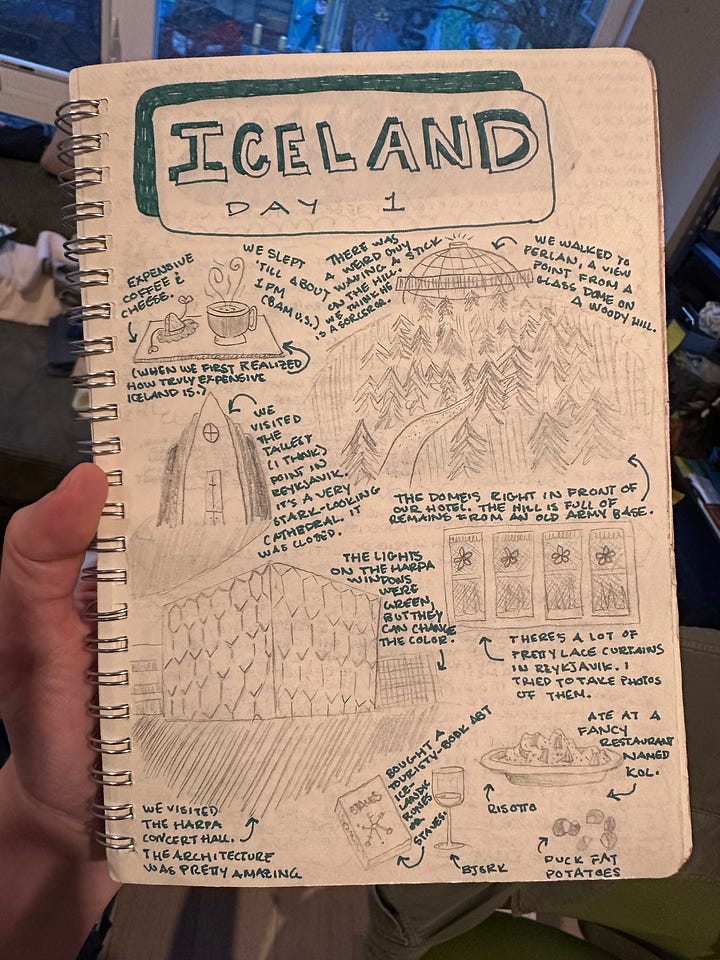 ICELAND
DAY 1
EXPENSIVE
COFFEE &
CHEESE.
WE SLEPT
'TILL ABOUT
1 PM
(8AM U.S.)
THERE WAS
A WEIRD GUY
WAVING A STICK
ON THE HILL.
WE THINK HE
IS A SORCEROR.
WE WALKED TO
PERLAN, A VIEW
POINT FROM A
GLASS DOME ON
A WOODY HILL.
(WHEN WE FIRST REALIZED
HOW TRULY EXPENSIVE
ICELAND IS.)
WE
VISITED
THE
TALLEST
(I THINK)
POINT IN
REYKJAVIK.
IT'S A VERY
STARK-LOOKING
CATHEDRAL. IT
WAS CLOSED.
THE DOME IS RIGHT IN FRONT OF
OUR HOTEL. THE HILL IS FULL OF
REMAINS FROM AN OLD ARMY BASE.
THE LIGHTS
ON THE HARPA
WINDOWS
WERE
GREEN,
BUT THEY
CAN CHANGE
THE COLOR.
THERE'S A LOT OF
PRETTY LACE CURTAINS
IN REYKJAVIK. I
TRIED TO TAKE PHOTOS
OF THEM.
WE VISITED
THE HARPA
CONCERT HALL.
THE ARCHITECTURE
WAS PRETTY AMAZING
BOUGHT A
TOURISTY-BOOK ABT
ICE-
LANDIC
RUNES
OR
STAVES.
STAVES
BJORK
ATE AT A
FANCY
RESTAURANT
NAMED
KOL.
RISOTTO
DUCK FAT
POTATOES